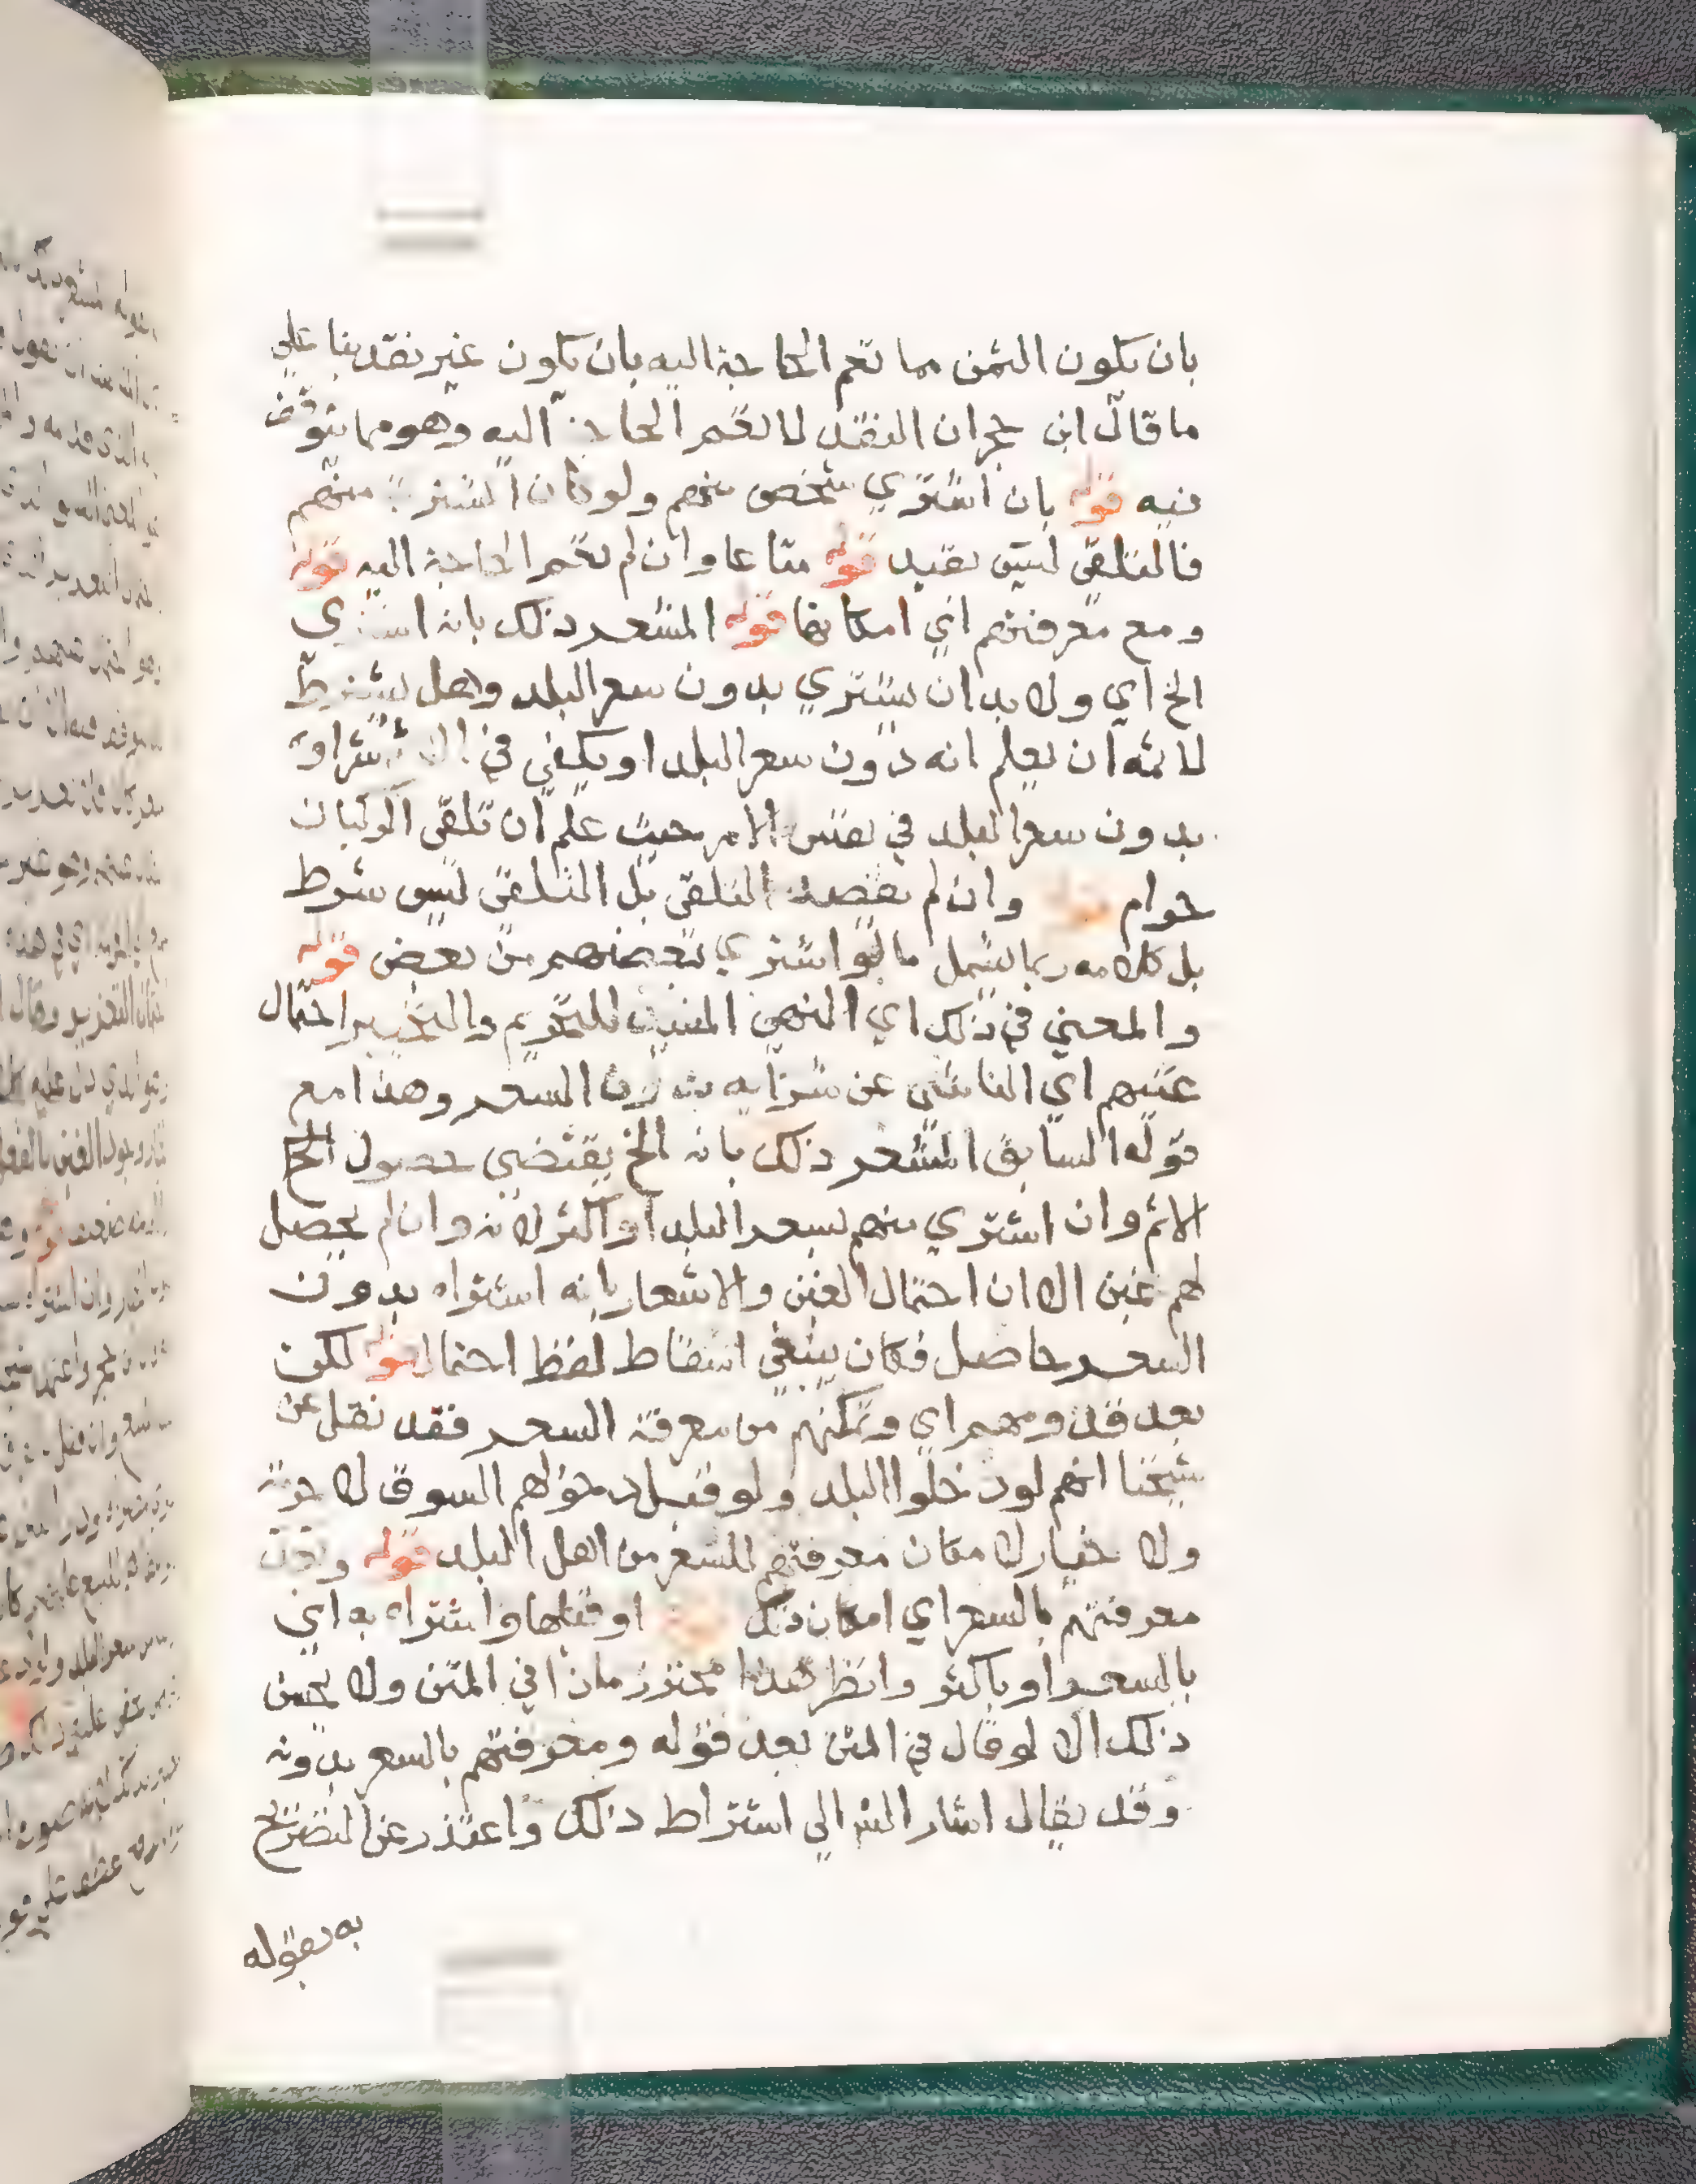 بان يكون الثمن مما تعم الحاجة اليه بان يكون غير نقد بنا علي
ما قال ابن حجر ان النقد لا تعم الحاجة اليه وهو مما يتوقف
فيه قوله بان اشتري شخص منهم ولو كان المشتري منهم
فالتلقي ليس بقيد قوله متاعا وان لم تعم الحاجة اليه قوله
ومع معرفتهم اي امكانها قوله المشعر ذلك بانه اشتري
الخ اي ولا بد ان يشتري بدون سعر البلد وهل يشترط
لاثمه ان يعلم انه دون سعر البلد او يكفي في شراوه
بدون سعر البلد في نفس الامر حيث علم ان تلقي الركبان
حرام قوله وان لم يقصد التلقي بل التلقي ليس شرط
بل كلامه ربما يشمل ما لو اشتري بعضهم من بعض قوله
والمعني في ذلك اي النهي المثبت للتحريم والتخيير احتمال
غبنهم اي الناشي عن شرايه بدون السعر وهذا مع
قوله السابق المشعر ذلك بانه الخ يقتضي حصول الخ
الاثم وان اشتري منهم بسعر البلد او اكثر لانه وان لم يحصل
لهم غبن الا ان احتمال الغبن والاشعار بانه اشتراه بدون
السعر حاصل فكان ينبغي اسقاط لفظ احتمال قوله لكن
بعد قدومهم اي وتمكنهم من معرفة السعر فقد نقل عن
شيخنا انهم لو دخلوا البلد ولو قبل دخولهم السوق لا حرمة
ولا خيار لامكان معرفتهم للسعر من اهل البلد قوله وقبل
معرفتهم بالسعر اي امكان ذلك قوله او قبلها واشتراه به اي
بالسعر او باكثر وانظر هذا محترز ماذا في المتن ولا يحسن
ذلك الا لو قال في المتن بعد قوله ومعرفتهم بالسعر بدونه
وقد يقال اشار الش الي اشتراط ذلك واعتذر عن التصريح
به بقوله